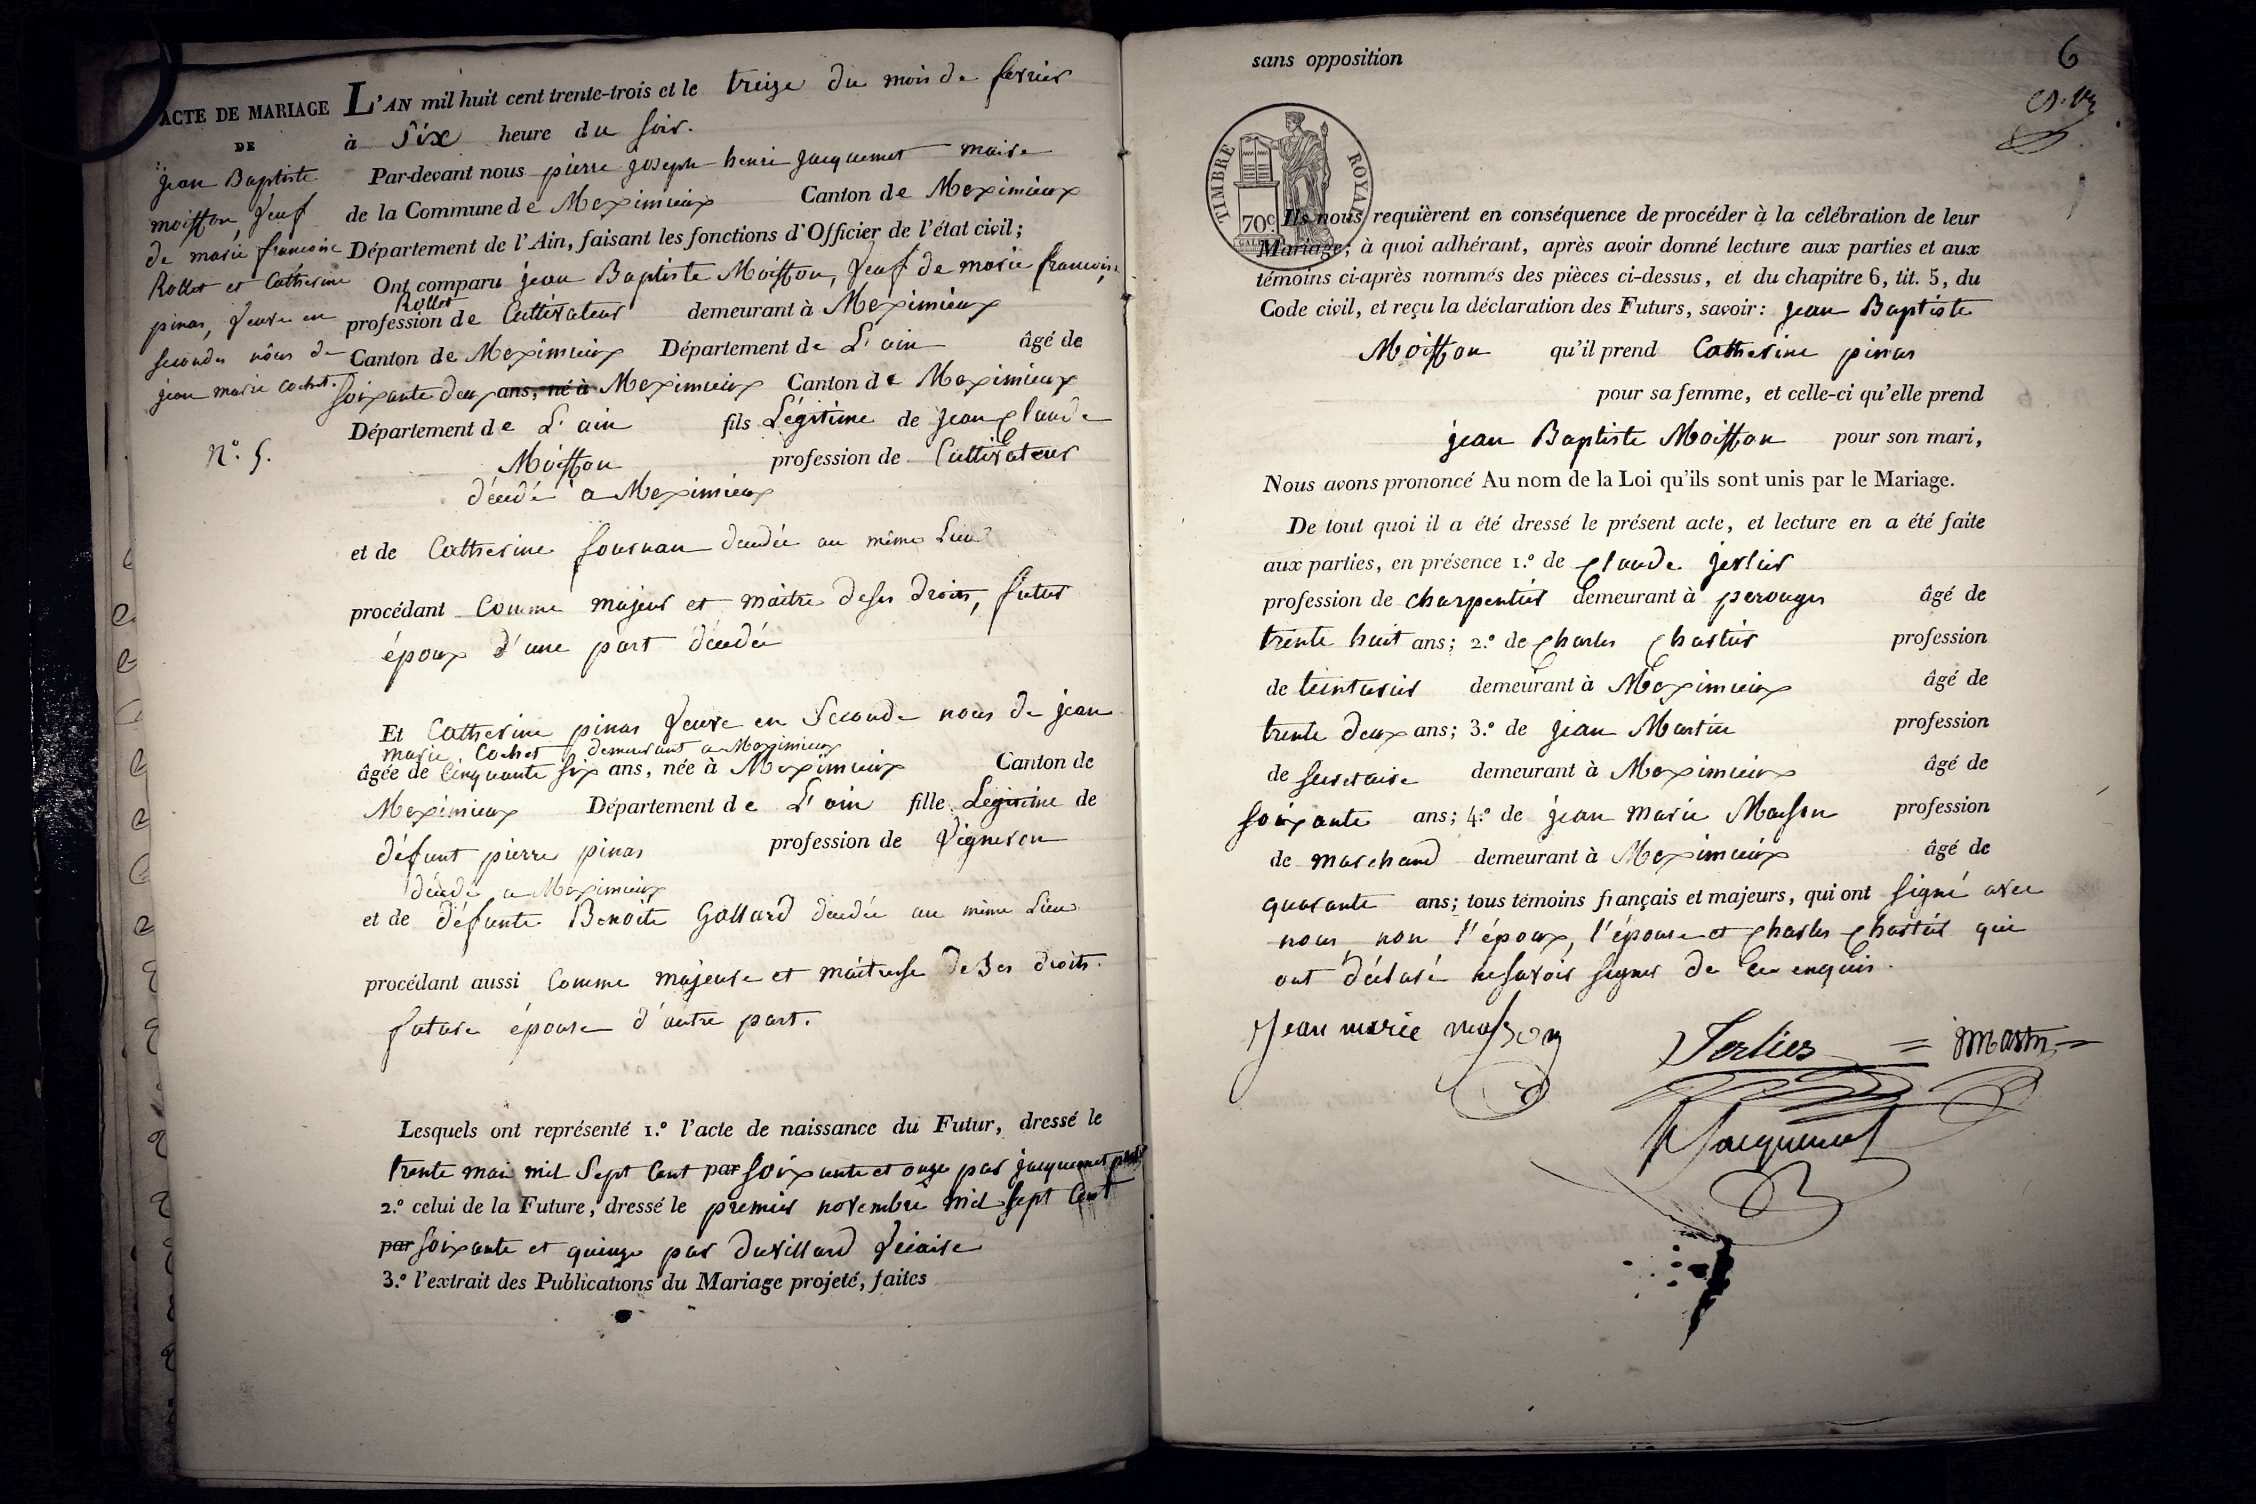 ACTE DE MARIAGE
DE
jean Baptiste
moisson, veuf
de marie francoise
Rollet et Catherine
pinas, veuve en
secondes nôces de
jean marie cochet.
N.° 5.
L'AN mil huit cent trente-trois et le treize du mois de fevrier
à Six heure du soir.
Par-devant nous pierre joseph henri jacquemet maire
de la Commune de Meximieux Canton de Meximieux
Département de l'Ain, faisant les fonctions d'Officier de l'état civil;
Ont comparu jean Baptiste Moisson, veuf de marie francoise
Rollet
profession de Cultivateur demeurant à Meximieux
Canton de Meximieux Département de L'ain âgé de
soixante deux ans, né à Meximieux Canton de Meximieux
Département de L'ain fils Légitime de jean claude
Moisson profession de Cultivateur
décédé a Meximieux
et de Catherine fournan décédée au même Lieu
procédant Comme majeur et maitre de ses droits, futur
époux d'une part décédée
Et Catherine pinas veuve en Seconde noces de jean
marie Cochet demeurant a Meximieux
âgée de Cinquante six ans, née à Meximieux Canton de
Meximieux Département de L'ain fille Légitime de
défunt pierre pinas profession de Vigneron
décédé a Meximieux
et de défunte Benoite Gallard décédée au même Lieu
procédant aussi Comme majeure et maitresse de ses droits.
future épouse d'autre part.
Lesquels ont représenté 1.° l'acte de naissance du Futur, dressé le
trente mai mil Sept Cent par soixante et onze par jacquemet
2.° celui de la Future, dressé le premier novembre mil sept Cent
par soixante et quinze par duvillard vicaire
3.° l'extrait des Publications du Mariage projeté, faites
sans opposition
6
TIMBRE ROYAL
70c.
Ils nous requièrent en conséquence de procéder à la célébration de leur
Mariage; à quoi adhérant, après avoir donné lecture aux parties et aux
témoins ci-après nommés des pièces ci-dessus, et du chapitre 6, tit. 5, du
Code civil, et reçu la déclaration des Futurs, savoir: jean Baptiste
Moisson qu'il prend Catherine pinas
pour sa femme, et celle-ci qu'elle prend
jean Baptiste Moisson pour son mari,
Nous avons prononcé Au nom de la Loi qu'ils sont unis par le Mariage.
De tout quoi il a été dressé le présent acte, et lecture en a été faite
aux parties, en présence 1.° de claude jerlier
profession de charpentier demeurant à perouges âgé de
trente huit ans; 2.° de charles chartier profession
de teinturier demeurant à Meximieux âgé de
trente deux ans; 3.° de jean Martin profession
de secretaire demeurant à Meximieux âgé de
soixante ans; 4.° de jean marie Masson profession
de marchand demeurant à Meximieux âgé de
quarante ans; tous témoins français et majeurs, qui ont signé avec
nous non l'époux, l'épouse et charles chartier qui
ont déclaré ne savoir signer de ce enquis.
Jean marie masson
Jerlier
jmartin
Jacquemet